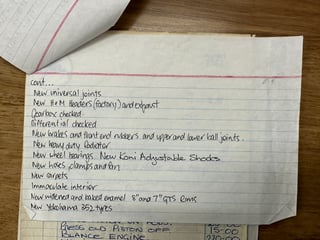 cont...
New universal joints
New H+M Headers (factory) and exhaust
Gearbox checked
Differential checked
New brakes and front end rubbers and upper and lower ball joints.
New heavy duty Radiator
New wheel bearings. New Koni Adjustable Shocks
New hoses clamps and fan
New carpets
Immaculate interior
New widened and baked enamel 8" and 7" GTS Rims
New Yokohama 352 tyres
PRESS OLD PISTON OFF
BLANCE ENGINE